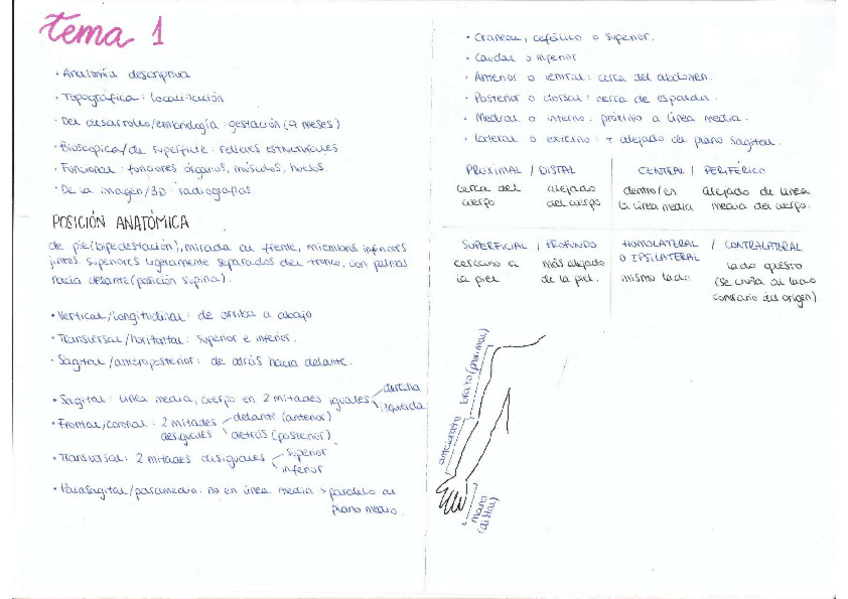 tema 1
· Anatomía descriptiva
· Topográfica: localización
· Del desarrollo/embriología: gestación (9 meses)
· Bioscópica/de superficie: relieves estructurales
· Funcional: funciones órganos, músculos, huesos.
· De la imagen/3D: radiografías
POSICIÓN ANATÓMICA
de pie (bipedestación), mirada al frente, miembros inferiores
juntos. Superiores ligeramente separados del tronco, con palmas
hacia delante (posición supina).
· Vertical/longitudinal: de arriba a abajo
· Transversal/horizontal: superior e inferior.
· Sagital/anteroposterior: de atrás hacia delante.
· Sagital: línea media, cuerpo en 2 mitades iguales derecha
izquierda
· Frontal/coronal: 2 mitades delante (anterior)
desiguales detrás (posterior)
· Transversal: 2 mitades desiguales superior
inferior
· Parasagital/paramedio: no en línea media > paralelo al
plano medio.
· Craneal, cefálico o superior.
· Caudal o inferior
· Anterior o ventral: cerca del abdomen.
· Posterior o dorsal: cerca de espalda.
· Medial o interno: próximo a línea media.
· Lateral o externo: + alejado de plano sagital.
PROXIMAL / DISTAL
cerca del alejado
cuerpo del cuerpo
CENTRAL / PERIFÉRICO
dentro/en alejado de línea
la línea media media del cuerpo.
SUPERFICIAL / PROFUNDO
cercano a más alejado
la piel de la piel.
HOMOLATERAL / CONTRALATERAL
O IPSILATERAL lado opuesto
mismo lado (se cruza al lado
contrario del origen)
brazo (proximal)
antebrazo
mano
(distal)